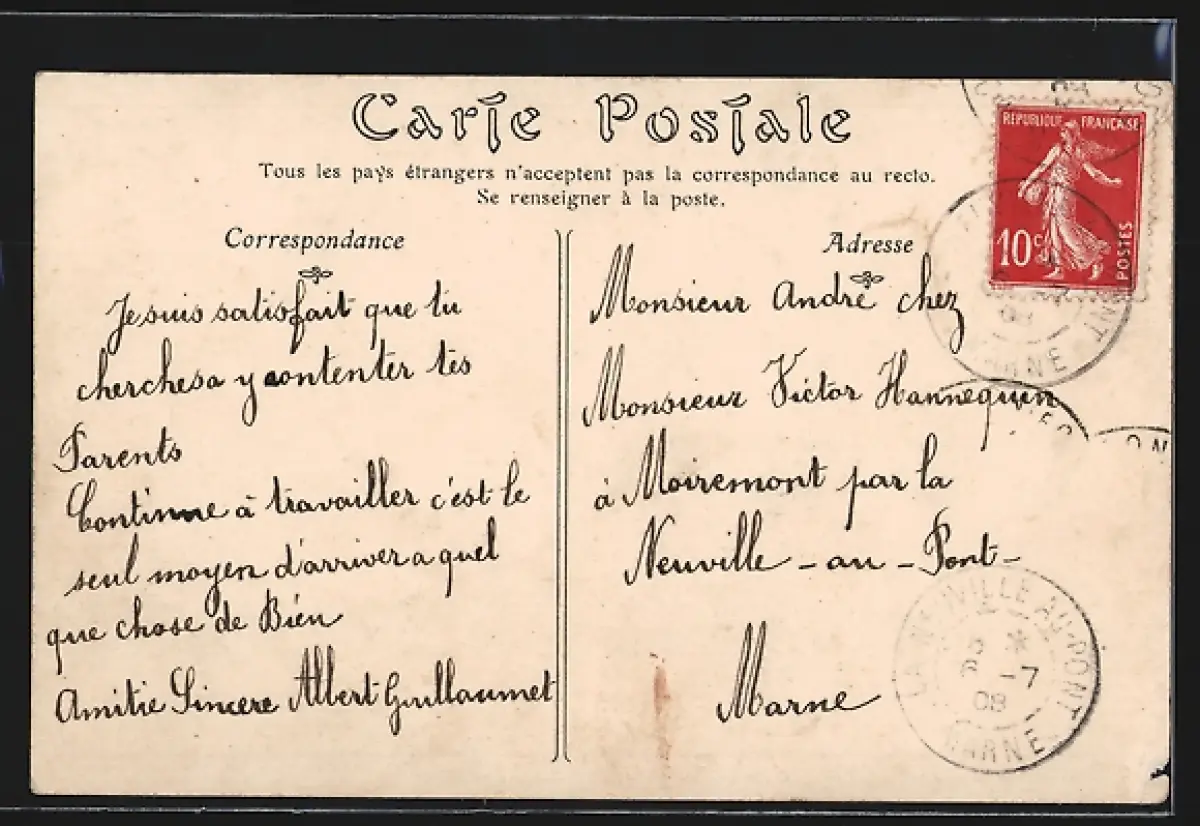 Carte Postale
Tous les pays étrangers n'acceptent pas la correspondance au recto.
Se renseigner à la poste.
Correspondance
Je suis satisfait que tu
cherches a y contenter tes
Parents
Continue à travailler c'est le
seul moyen d'arriver a quel
que chose de Bien
Amitie Sincere Albert Guillaumet
Adresse
Monsieur André chez
Monsieur Victor Hannequin
à Moiremont par la
Neuville - au - Pont -
Marne
REPUBLIQUE FRANÇAISE
10c
POSTES
MARNE
LA NEUVILLE AU-PONT
-7
08
MARNE